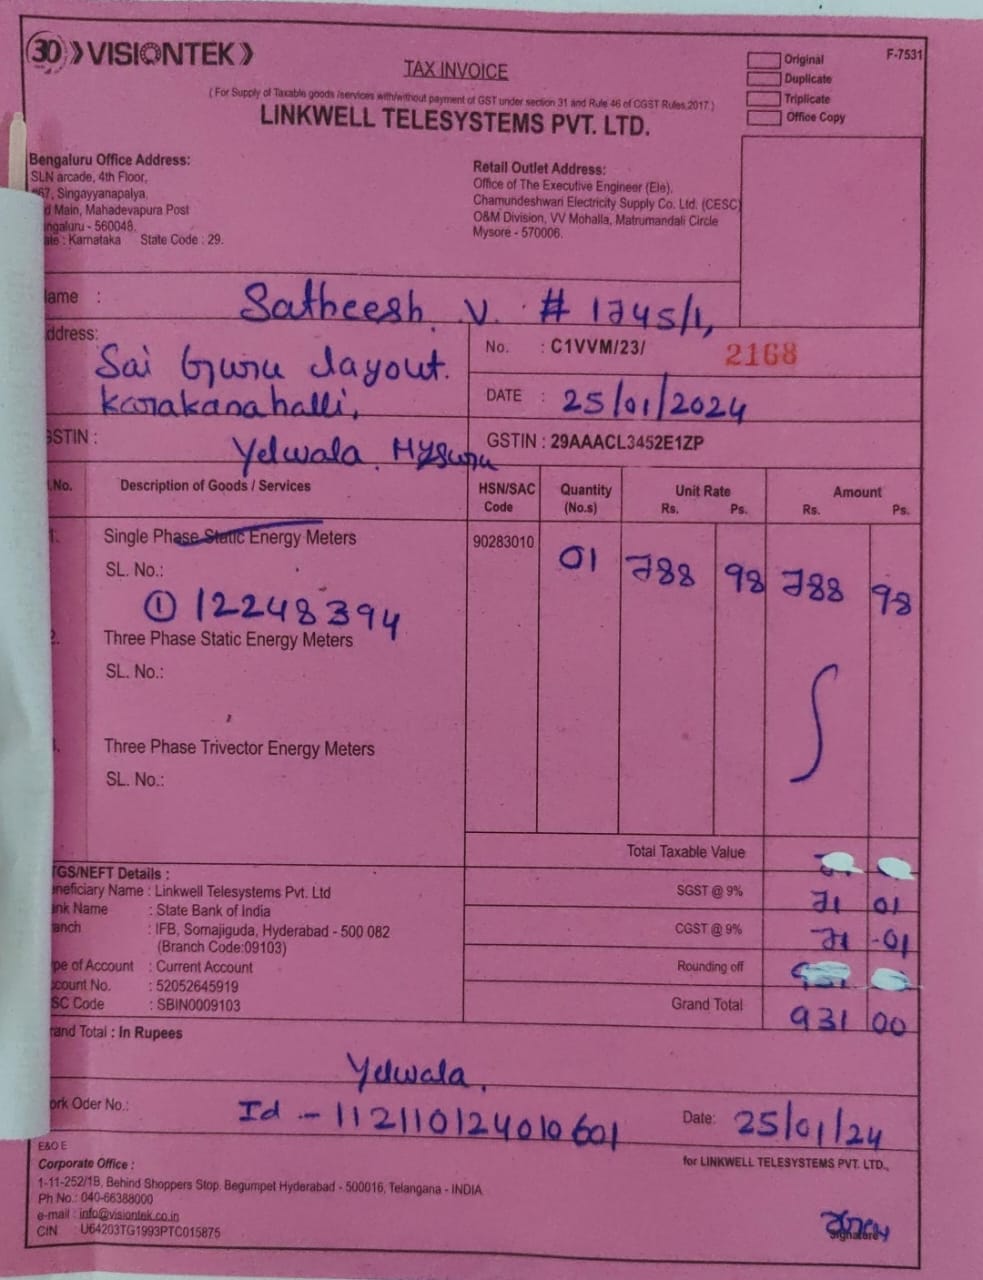 30 VISIONTEK
F-7531
TAX INVOICE
Original
Duplicate
Triplicate
Office Copy
( For Supply of Taxable goods /services with/without payment of GST under section 31 and Rule 46 of CGST Rules,2017.)
LINKWELL TELESYSTEMS PVT. LTD.
Bengaluru Office Address:
SLN arcade, 4th Floor,
67, Singayyanapalya,
d Main, Mahadevapura Post
ngaluru - 560048.
ate : Karnataka State Code : 29.
Retail Outlet Address:
Office of The Executive Engineer (Ele),
Chamundeshwari Electricity Supply Co. Ltd. (CESC)
O&M Division, VV Mohalla, Matrumandali Circle
Mysore - 570006.
ame : Satheesh. V. # 1745/1,
ddress: Sai Guru layout.
karakanahalli,
No. : C1VVM/23/ 2168
DATE : 25/01/2024
GSTIN : Yelwala. Mysuru
GSTIN : 29AAACL3452E1ZP
.No. Description of Goods / Services HSN/SAC Code Quantity (No.s) Unit Rate Rs. Ps. Amount Rs. Ps.
1. Single Phase Static Energy Meters 90283010 01 788 98 788 98
SL. No.:
① 12248394
2. Three Phase Static Energy Meters
SL. No.:
Three Phase Trivector Energy Meters
SL. No.:
Total Taxable Value
TGS/NEFT Details :
eneficiary Name : Linkwell Telesystems Pvt. Ltd
ank Name : State Bank of India
anch : IFB, Somajiguda, Hyderabad - 500 082
(Branch Code:09103)
pe of Account : Current Account
count No. : 52052645919
SC Code : SBIN0009103
SGST @ 9% 71 01
CGST @ 9% 71 -01
Rounding off
Grand Total 931 00
rand Total : In Rupees
Yelwala.
ork Oder No.: Id - 112110124010601
Date: 25/01/24
E&O E
for LINKWELL TELESYSTEMS PVT. LTD.,
Corporate Office :
1-11-252/1B, Behind Shoppers Stop, Begumpet Hyderabad - 500016, Telangana - INDIA
Ph No.: 040-66388000
e-mail : info@visiontek.co.in
CIN : U64203TG1993PTC015875
Signature